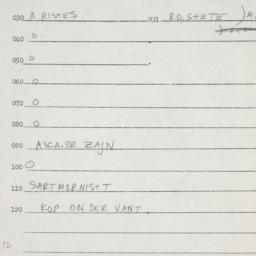 030 A RISTES 031 RO, STETE ) M
040 0
050 0
060 0
070 0
080 0
090 A3CA.3R ZAJN
100 0
110 SARTM1P.NIS+T
120 KOP ON DER VANT
72